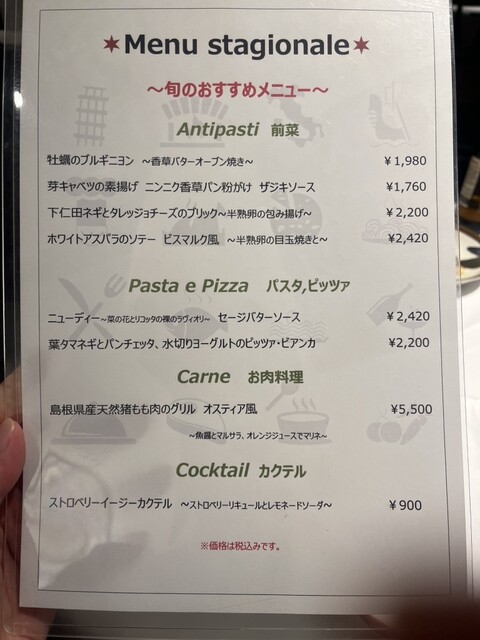 ★Menu stagionale★
～旬のおすすめメニュー～
Antipasti 前菜
牡蠣のブルギニヨン ～香草バターオーブン焼き～ ￥1,980
芽キャベツの素揚げ ニンニク香草パン粉がけ ザジキソース ¥1,760
下仁田ネギとタレッジョチーズのブリック～半熟卵の包み揚げ～ ￥2,200
ホワイトアスパラのソテー ビスマルク風 ～半熟卵の目玉焼きと～ ¥2,420
Pasta e Pizza パスタ,ピッツァ
ニューディー～菜の花とリコッタの裸のラヴィオリ～ セージバターソース ￥2,420
葉タマネギとパンチェッタ、水切りヨーグルトのピッツァ・ビアンカ ¥2,200
Carne お肉料理
島根県産天然猪もも肉のグリル オスティア風 ¥5,500
～魚醤とマルサラ、オレンジジュースでマリネ～
Cocktail カクテル
ストロベリーイージーカクテル ～ストロベリーリキュールとレモネードソーダ～ ￥900
※価格は税込みです。